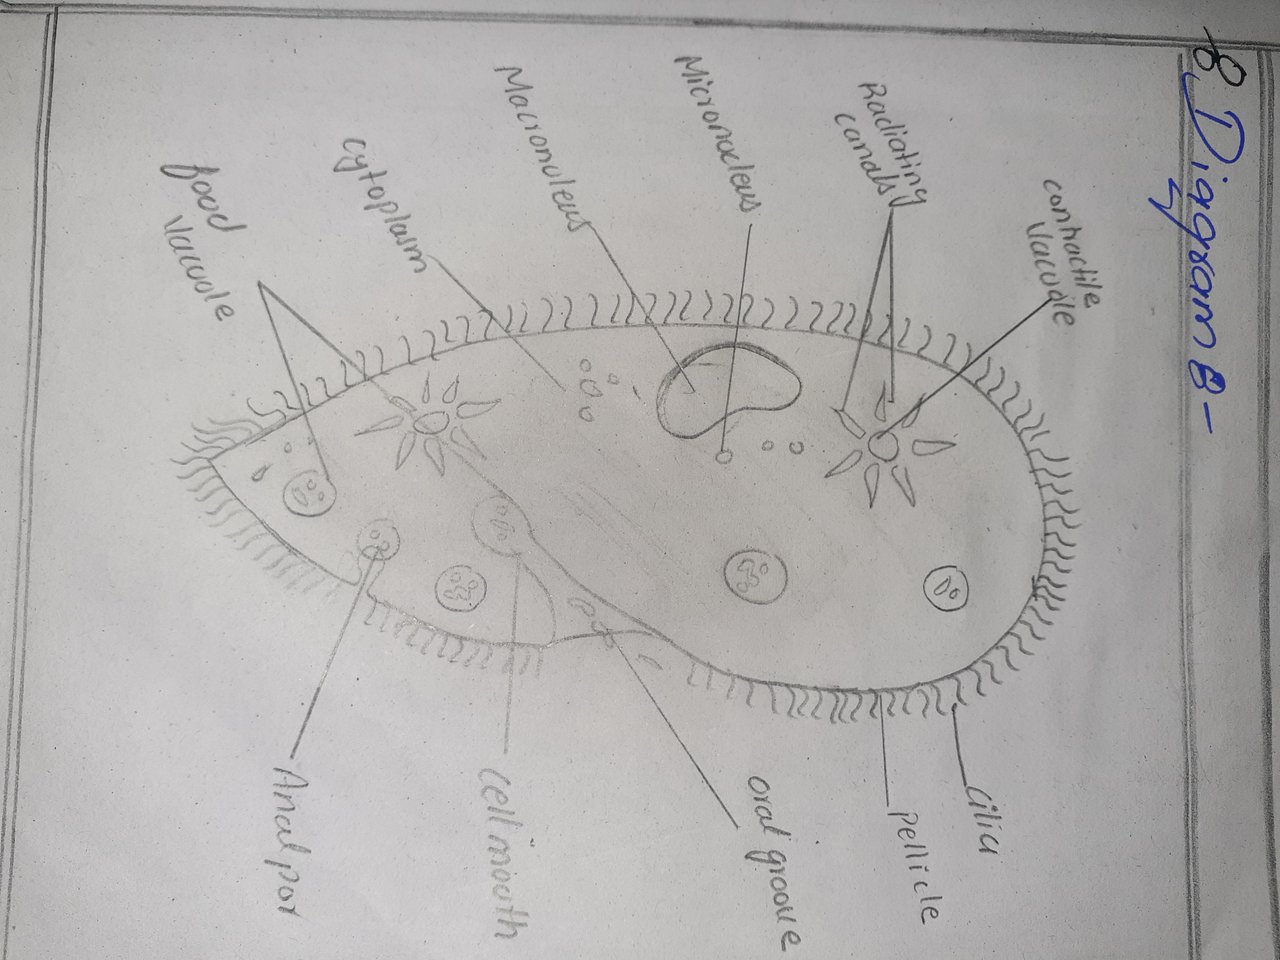 8, Diagram 8-
contractile
Vacuole
Radiating
canals
Micronucleus
Macronuleus
cytoplasm
food
Vacuole
cilia
pellicle
oral groove
Cell mouth
Anal por